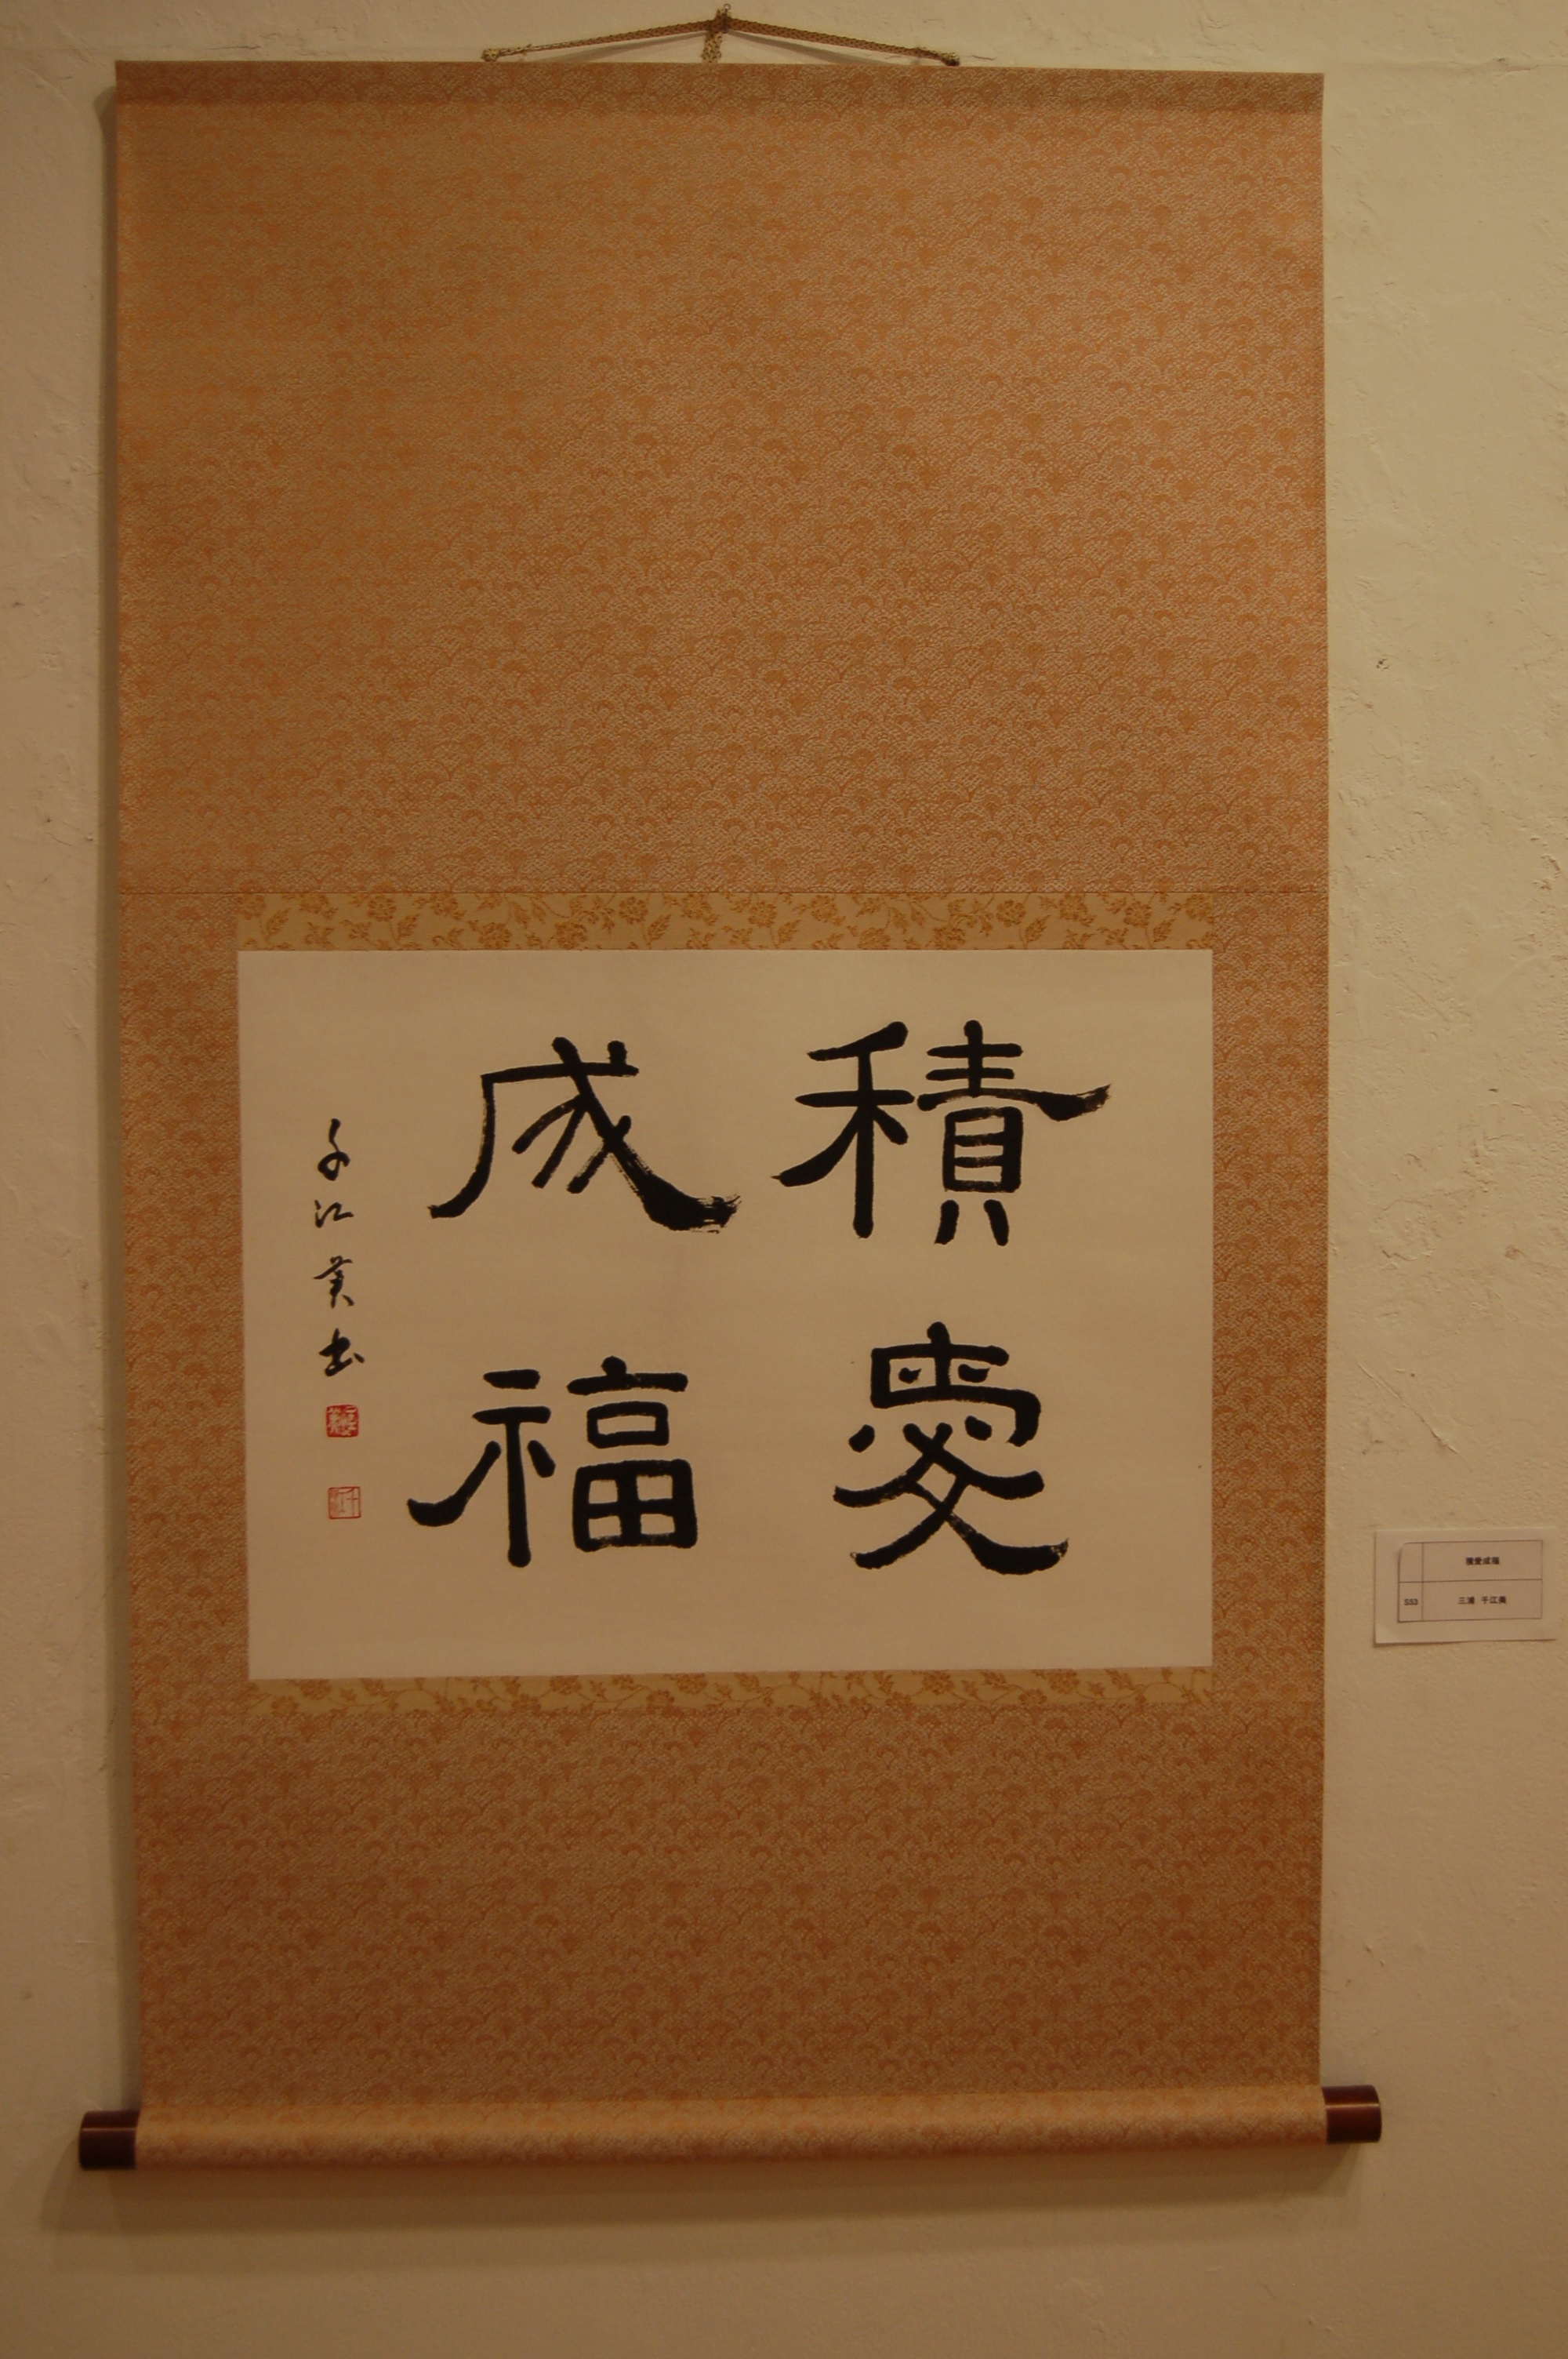 積愛
成福
千江美书
積愛成福
S53 三浦 千江美